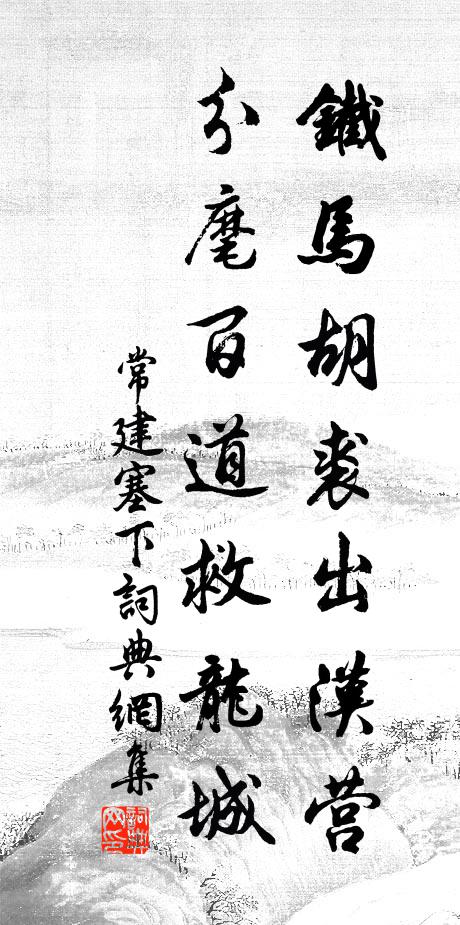 鐵馬胡裘出漢营
分麾百道救龍城
常建塞下詞典網集
詞典网印